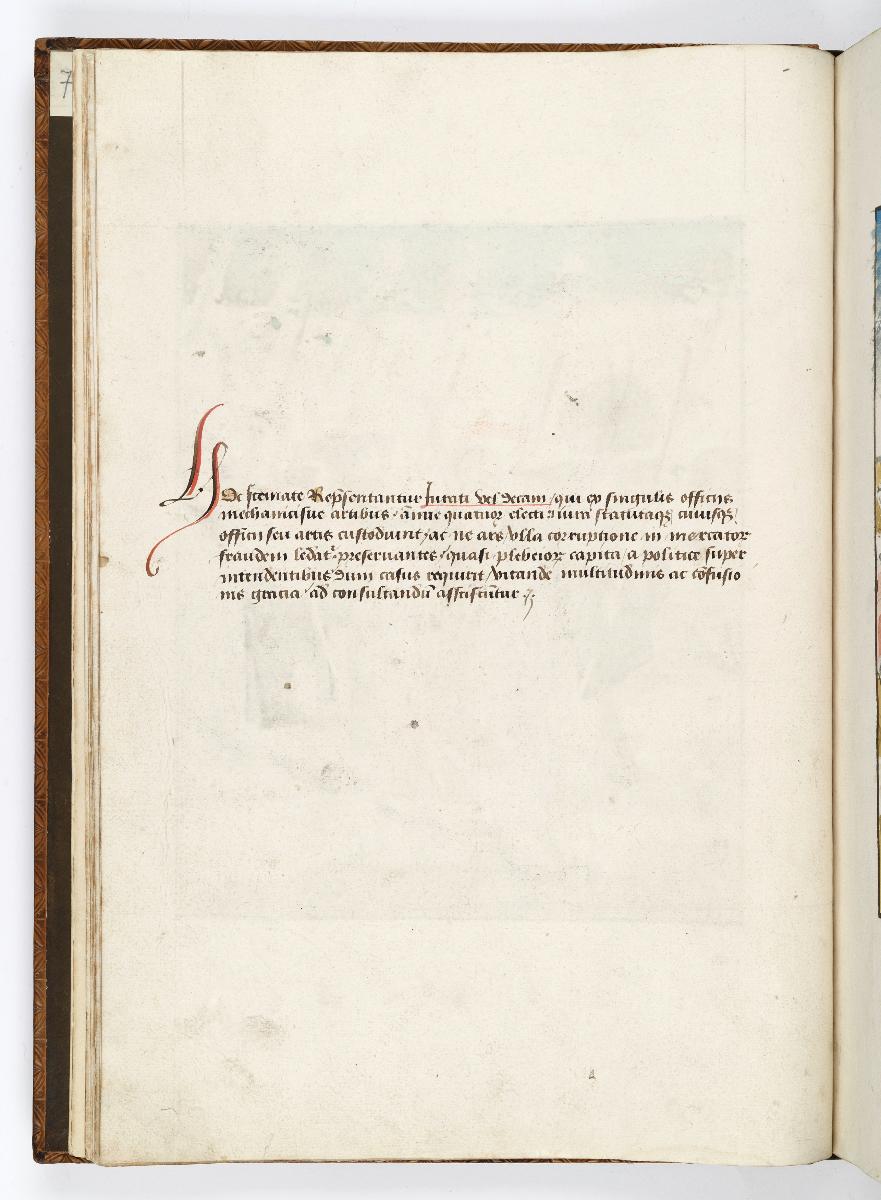 7
Hoc scemate Rep̃sentantur Iurati vel decani / qui ex singulis officijs
mechanicisve artibus / ãnue quatuoꝝ electi : iura statutaqꝫ cuiusqꝫ
officij seu artis custodiunt / ac ne ars vlla corruptione in mercatoꝝ
fraudem ledat᷑ preseruantes / quasi plebeioꝝ capita / a politice super
intendentibus dum casus requirit / vitande multitudinis ac cõfusio
nis gracia / ad consultandũ assciscũtur